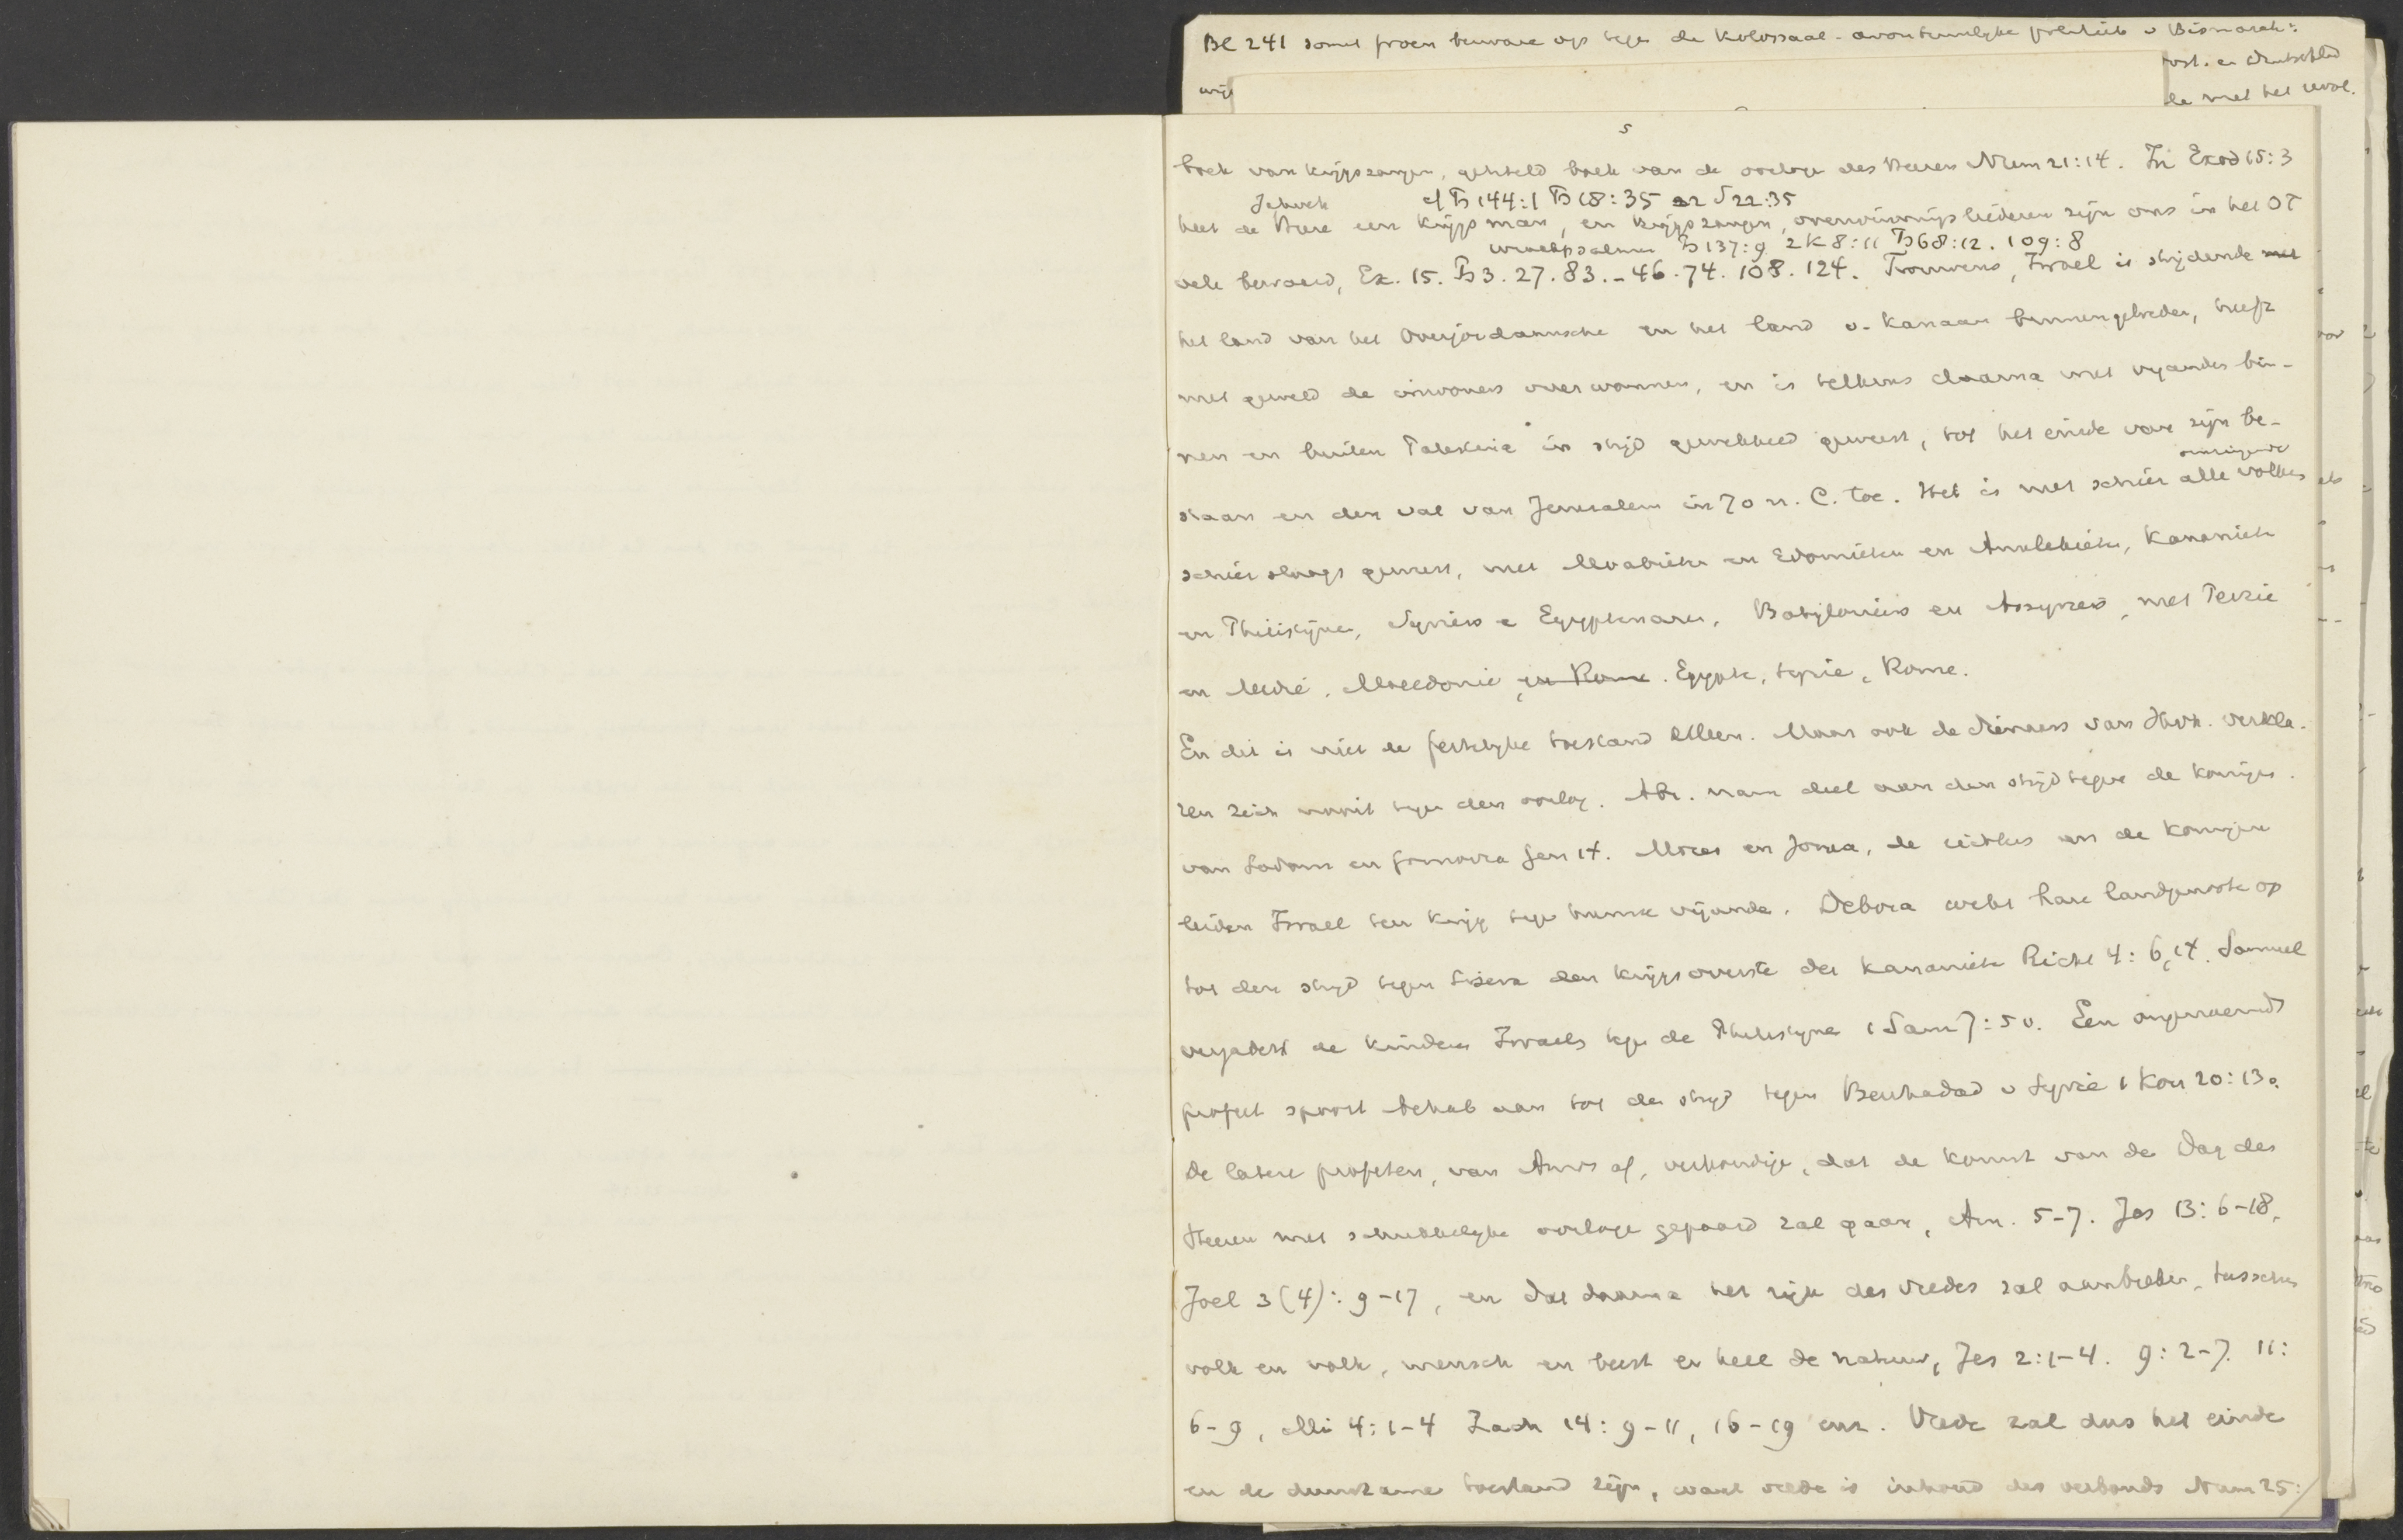 BC 241 somt proen beware op tege de kolossaal-avontuurlyke politiek v Bismarck:
wij
en Duitschland
de met het
5
boek van krijgszangen, getiteld boek van de oorloge des Heeren Num 21:14. In Exod 15:3
Jahveh cf Ps 144:1 Ps 18:35 2 S 22:35
heet de Heere een krijgsman, en krijgszangen, overwinningsliederen zijn ons in het OT
wraakpsalmen Ps 137:9 2K 8:11 Ps 68:12. 109:8
vele bewaard, Ex. 15. Ps 3. 27. 83. - 46. 74. 108. 124. Trouwens, Israel is strijdende
het land van het Overjordaansche en het land v. Kanaan binnengetreden, heeft
met geweld de inwoners overwonnen, en is telkens daarna met vyanden bin-
nen en buiten Palestina in strijd gewikkeld geweest, tot het einde van zijn be-
omringende
staan en den val van Jeruzalem in 70 n. C. toe. Het is met schier alle volken
schier slaags geweest, met Moabieten en Edomieten en Amalekieten, Kananieten
en Philistijnen, Syriers e Egyptenaren, Babyloniers en Assyriers, met Perzie
en Medië, Macedonie en Rome. Egypte, Syrie, Rome.
En dit is niet de feitelyke toestand alleen. Maar ook de dienaers van Jhvh. verkla-
ren zich nooit tegen den oorlog. Abr. nam deel aan den strijd tegen de koningen
van Sodom en Gomorra Gen 14. Mozes en Jozua, de richters en de koningen
leiden Israel ten krijg tege hunne vijande. Debora wekt hare landgenoote op
tot den strijd tegen Sisera den krijgsoverste der Kananiete Richt 4:6, 14. Samuel
vergadert de kinderen Israels tege de Philistijne 1 Sam 7:5v. Een ongenoemd
profeet spoort Achab aan tot den strijd tegen Benhadad v Syrië 1 Kon 20:13.
De latere profeten, van Amos af, verkondige, dat de komst van de Dag des
Heeren met schrikkelyke oorloge gepaard zal gaan, Am. 5-7. Jes 13:6-18,
Joel 3(4):9-17, en dat daarna het rijk des vredes zal aanbreken, tusschen
volk en volk, mensch en beest en heel de natuur, Jes 2:1-4. 9:2-7. 11:
6-9, Mi 4:1-4 Zach 14:9-11, 16-19 enz. Vrede zal dus het einde
en de duurzame toestand zijn, want vrede is inhoud des verbonds Num 25: